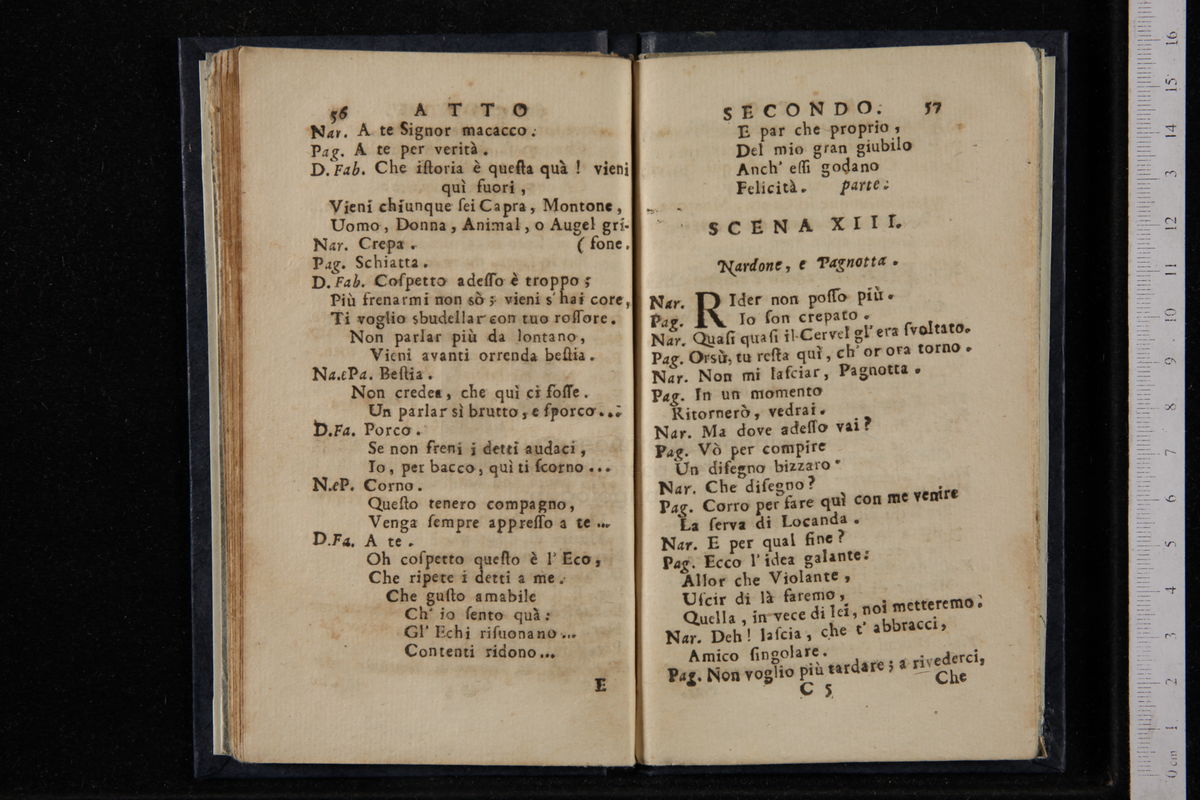 56 ATTO
Nar. A te Signor macacco.
Pag. A te per verità.
D. Fab. Che iſtoria è queſta quà! vieni
quì fuori,
Vieni chiunque ſei Capra, Montone,
Uomo, Donna, Animal, o Augel gri-
Nar. Crepa. (fone.
Pag. Schiatta.
D. Fab. Coſpetto adeſſo è troppo;
Più frenarmi non sò; vieni s'hai core,
Ti voglio sbudellar con tuo roſſore.
Non parlar più da lontano,
Vieni avanti orrenda beſtia.
Na.ePa. Beſtia.
Non credea, che quì ci foſſe.
Un parlar sì brutto, e ſporco...
D.Fa. Porco.
Se non freni i detti audaci,
Io, per bacco, quì ti ſcorno...
N.eP. Corno.
Queſto tenero compagno,
Venga ſempre appreſſo a te...
D.Fa. A te.
Oh coſpetto queſto è l'Eco,
Che ripete i detti a me.
Che guſto amabile
Ch' io ſento quà:
Gl' Echi riſuonano...
Contenti ridono...
E
SECONDO. 57
E par che proprio,
Del mio gran giubilo
Anch' eſſi godano
Felicità. parte.
SCENA XIII.
Nardone, e Pagnotta.
Nar. RIder non poſſo più.
Pag. Io ſon crepato.
Nar. Quaſi quaſi il Cervel gl' era ſvoltato.
Pag. Orsù, tu reſta quì, ch' or ora torno.
Nar. Non mi laſciar, Pagnotta.
Pag. In un momento
Ritornerò, vedrai.
Nar. Ma dove adeſſo vai?
Pag. Vò per compire
Un diſegno bizzaro.
Nar. Che diſegno?
Pag. Corro per fare quì con me venire
La ſerva di Locanda.
Nar. E per qual fine?
Pag. Ecco l'idea galante:
Allor che Violante,
Uſcir di là faremo,
Quella, in vece di lei, noi metteremo.
Nar. Deh! laſcia, che t' abbracci,
Amico ſingolare.
Pag. Non voglio più tardare; a rivederci,
C 5 Che
0 cm 1 2 3 4 5 6 7 8 9 10 11 12 13 14 15 16